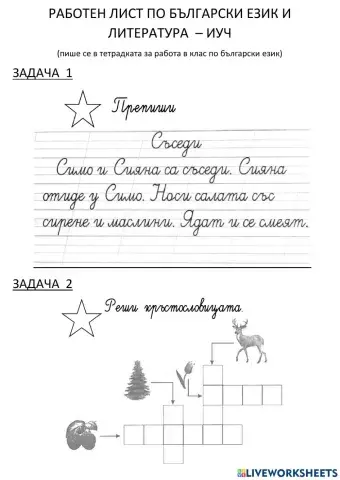 РАБОТЕН ЛИСТ ПО БЪЛГАРСКИ ЕЗИК И
ЛИТЕРАТУРА – ИУЧ
(пише се в тетрадката за работа в клас по български език)
ЗАДАЧА 1
Препиши
Съседи
Симо и Сияна са съседи. Сияна
отиде у Симо. Носи салата със
сирене и маслини. Ядат и се смеят.
ЗАДАЧА 2
Реши кръстословицата.
LIVEWORKSHEETS